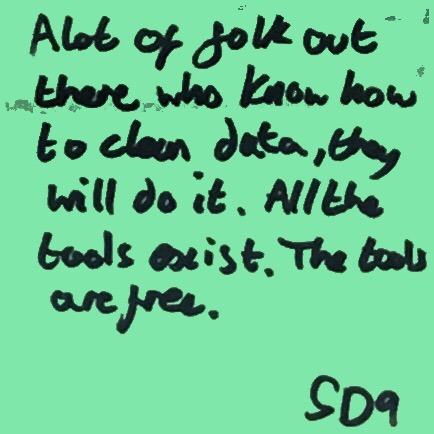 A lot of folk out
there who know how
to clean data, they
will do it. All the
tools exist. The tools
are free.
SD9